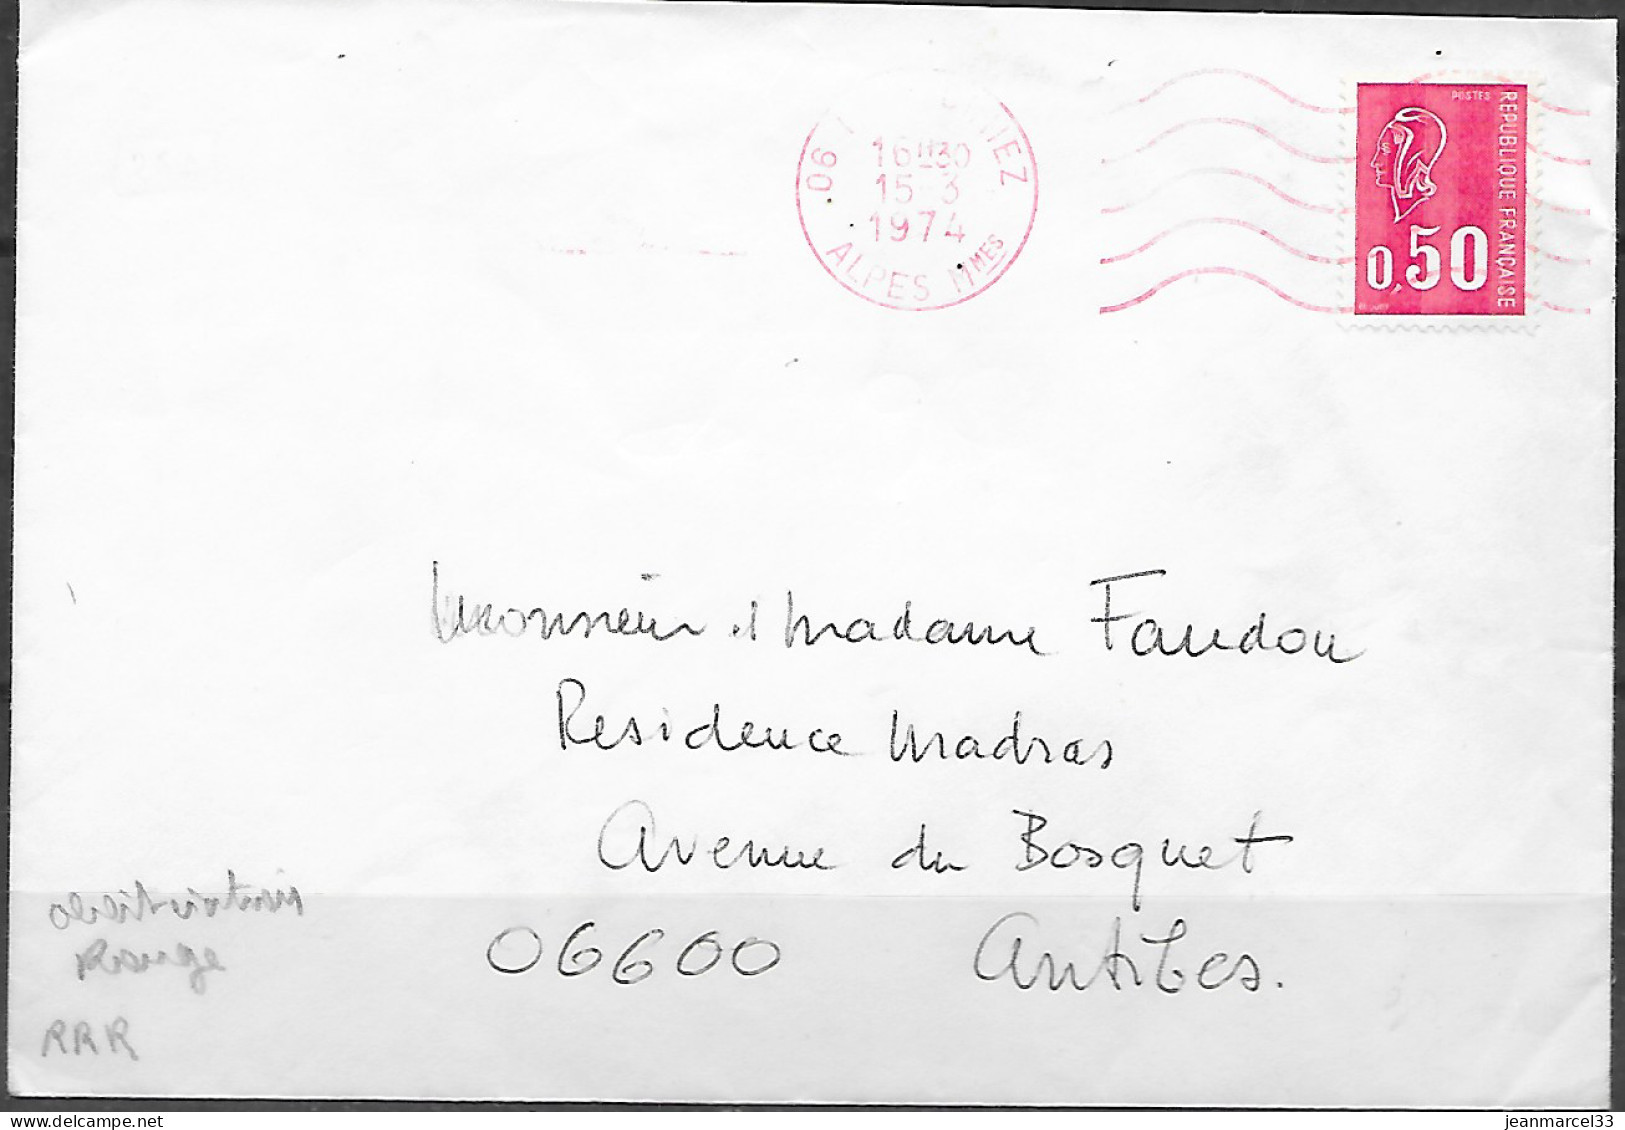 06
16H30
15-3
1974
ALPES MMES
POSTES
REPUBLIQUE FRANÇAISE
0,50
Monsieur et Madame Faudou
Residence Madras
Avenue du Bosquet
06600 Antibes.
Rouge
RRR
delcampe.net
jeanmarcel33